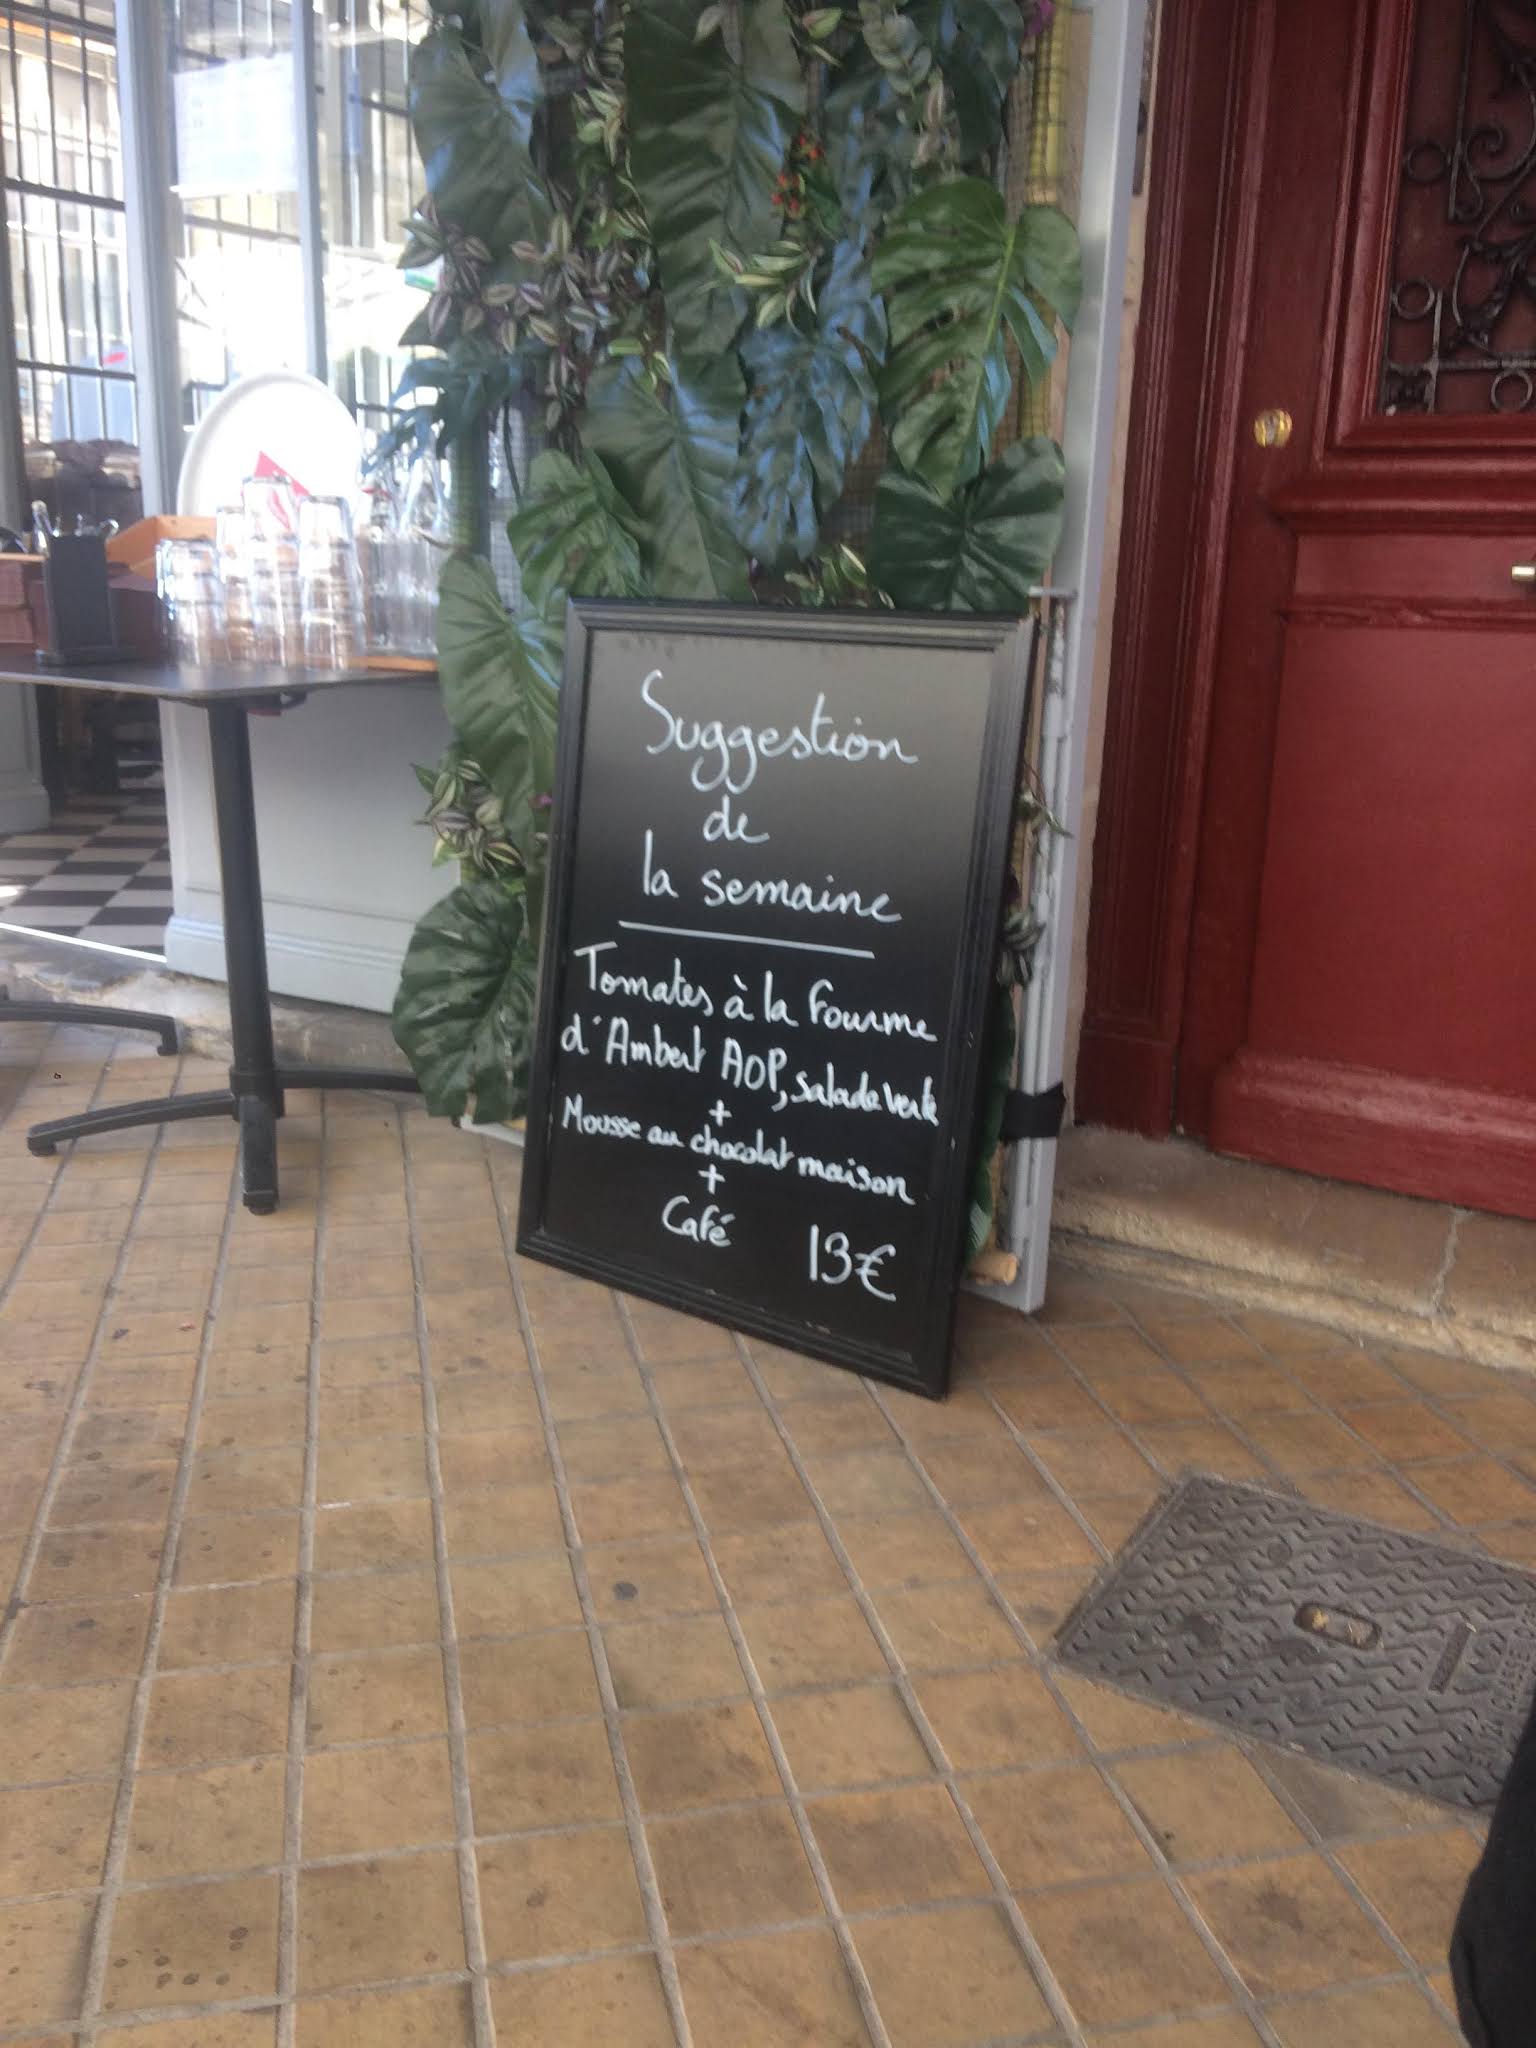 Suggestion
de
la semaine
Tomates à la Fourme
d'Ambert AOP, salade verte
+
Mousse au chocolat maison
+
Café 13€